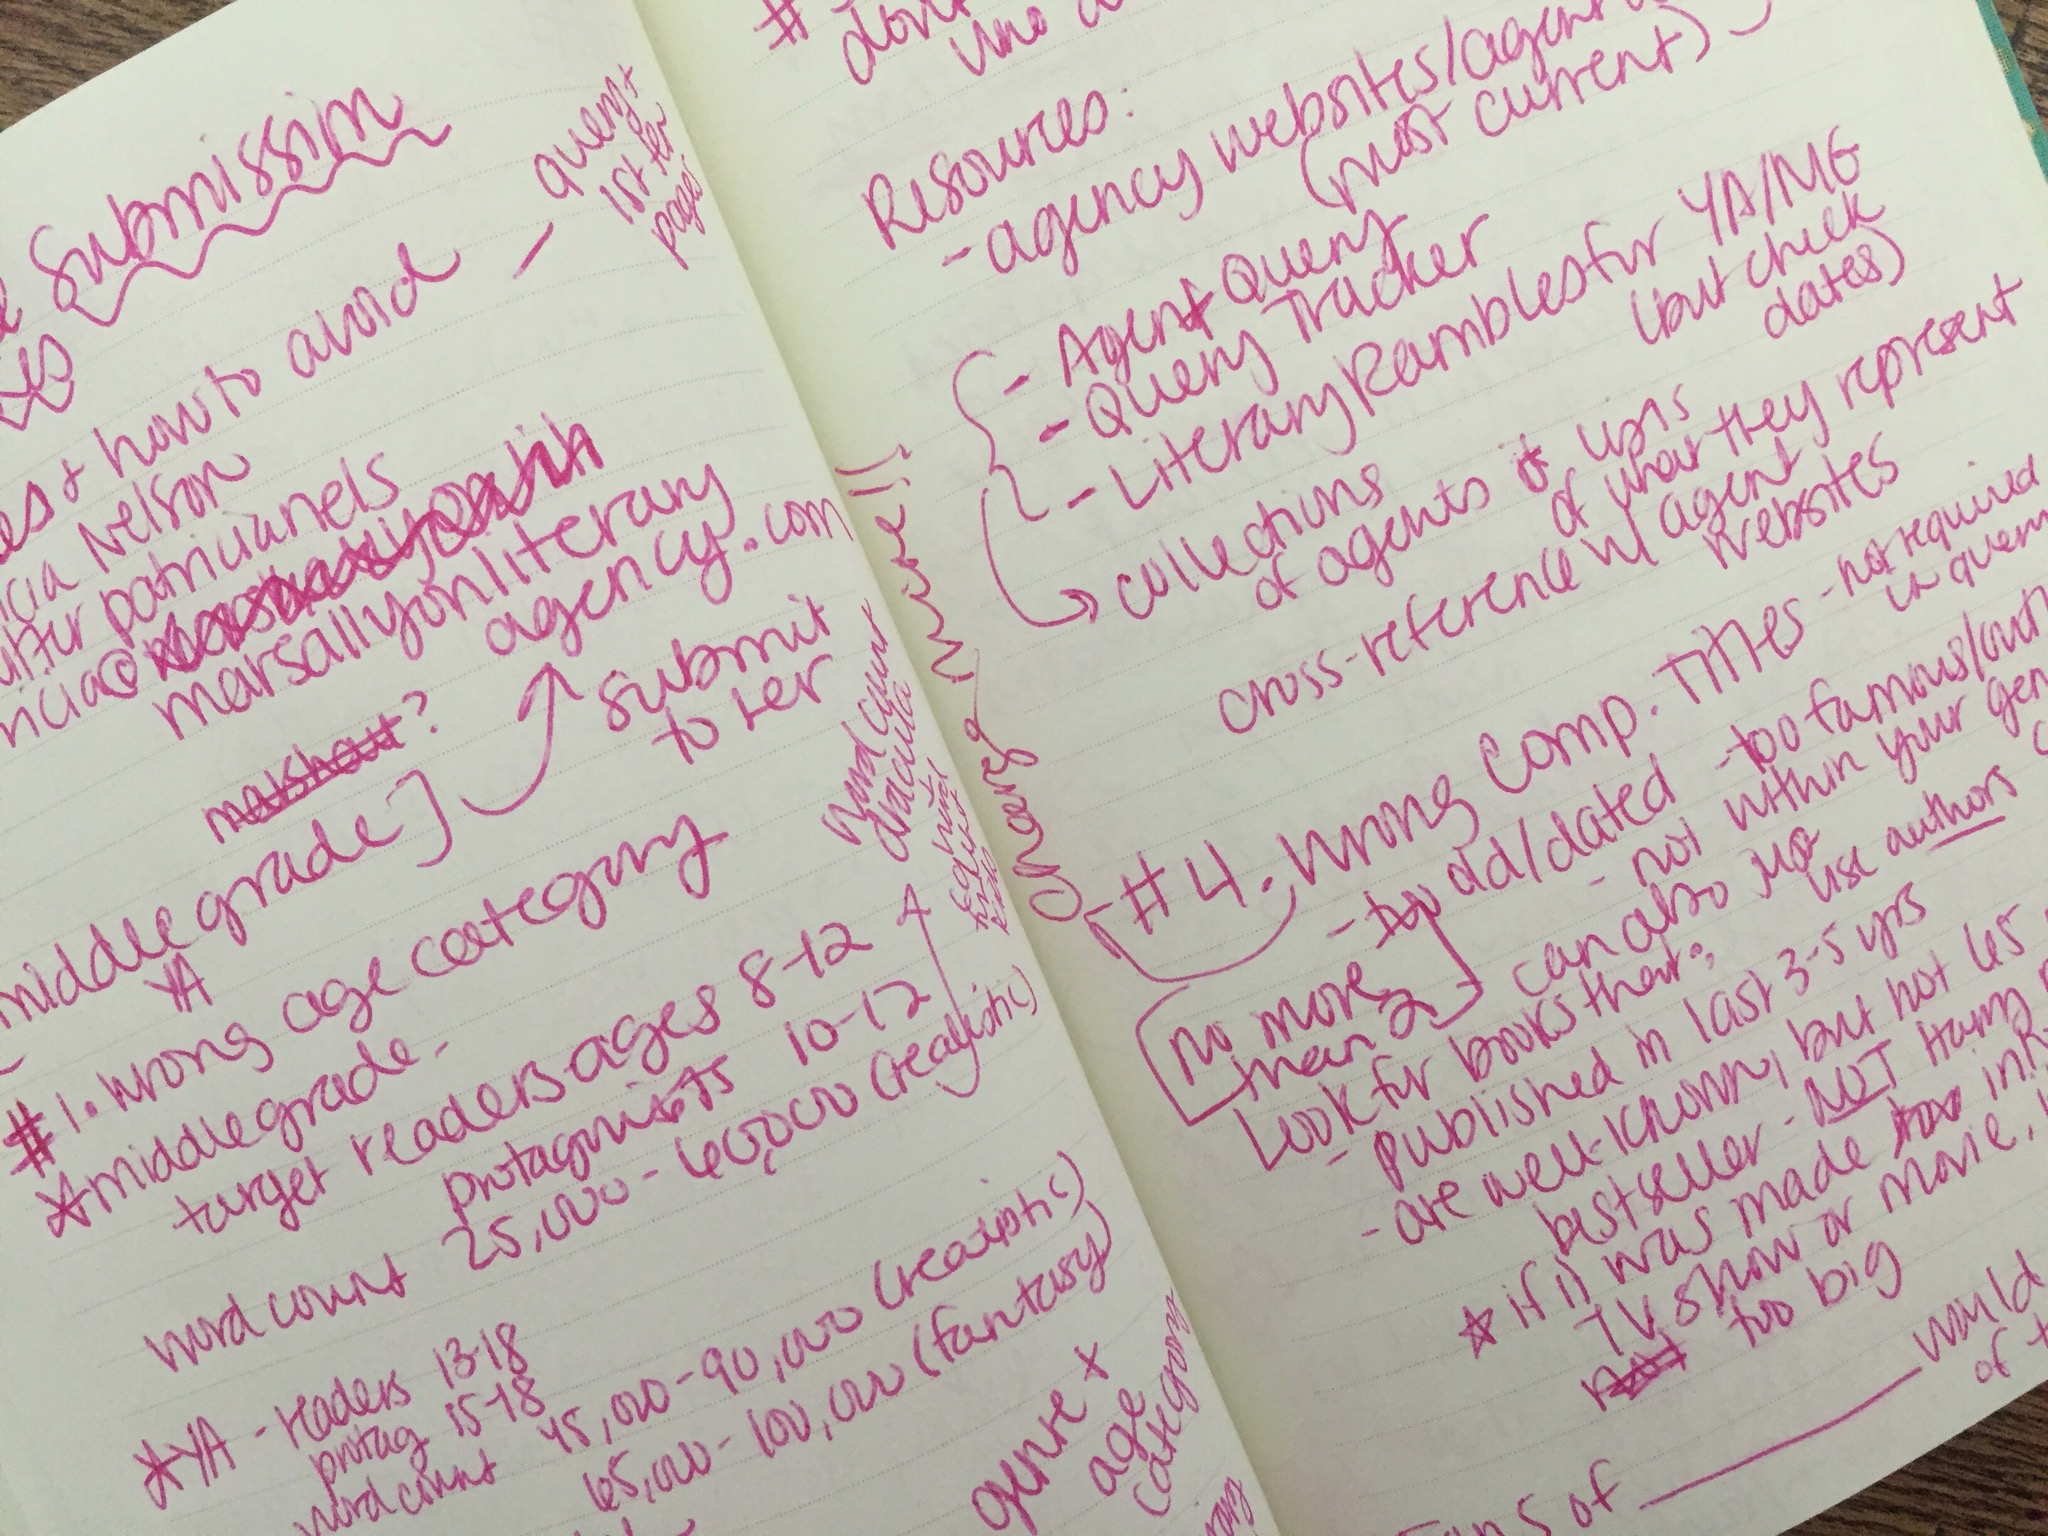 Submission
es
es + how to avoid — query +
1st ten
pages
icia Nelson
patricianels
marsallyonliterary
agency.com
submit
to her
?
middle grade]
YA
#1. wrong age category
*middle grade -
target readers ages 8-12
protagonists 10-12
word count 25,000 - 60,000 (realistic)
word count
dracula
*YA - readers 13-18
protag 15-18
word count 45,000 - 90,000 (realistic)
65,000 - 100,000 (fantasy)
genre +
age
category
#
don't
Resources:
- agency websites/agent
(most current)
- Agent Query
- Query Tracker
- Literary Rambles for YA/MG
(but check
dates)
collections
of agents
of what they represent
cross-reference w/ agent
websites
#4. Wrong Comp. Titles - not required
in query
- too old/dated - too famous/
- not within your gen
can also
use authors
[no more
than 2]
Look for books that:
- published in last 3-5 yrs
- are well-known, but not
bestseller - NOT
* if it was made into
TV show or movie,
too big
would
of
Fans of